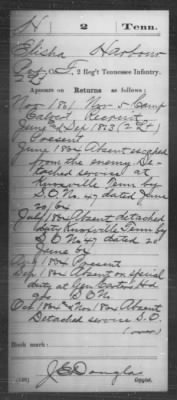 H 2 Tenn.
Elisha Harbour
Pvt Co. F, 2 Reg't Tennessee Infantry.
Appears on Returns as follows:
Nov 1861 Nov 5 Camp
Calvert Recruit
June & Sep 1862
Present
June 1862 Absent
from the enemy De-
tached service at
Knoxville Tenn by
S.O. No 47 dated June
20/62
July 1862 Absent detached
duty Knoxville Tenn by
S.O. No 47 dated 20
June 62
Aug 1862 Present
Sep 1862 Absent on special
duty at Gen Carter Hd
qrs S.O. No
Oct 1862 & Nov 1862 Absent
Detached service S.O.
(over)
Book mark:
J. E. Douglas
Copyist.